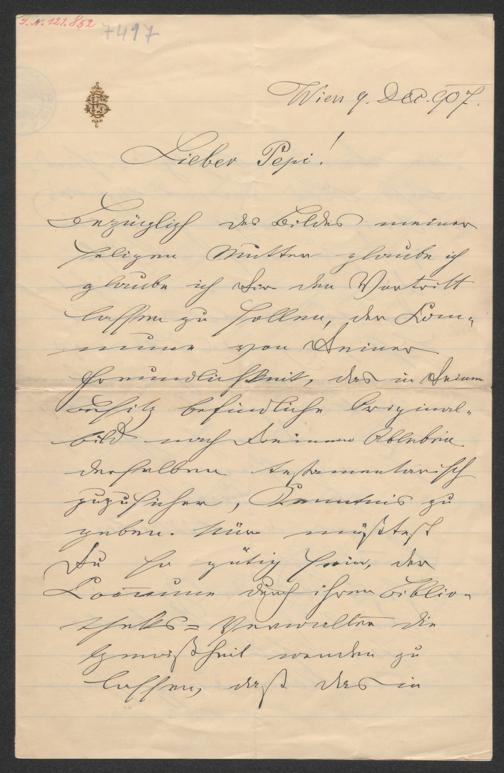 I. N. 121.852
7497
Wien 9. Dec. 907.
Lieber Pepi!
Bezüglich des Bildes meiner
seligen Mutter glaube ich
glaube ich Dir den Vortritt
lassen zu sollen, der Com-
mune von Deiner
Freundlichkeit, das in Deinem
Besitz befindliche Original-
bild nach Deinem Ableben
derselben testamentarisch
zuzusichern, Kenntnis zu
geben. Nur müßtest
Du so gütig sein, der
Commune durch ihren Biblio-
theks=Verwalter die
Gewißheit werden zu
lassen, daß das in